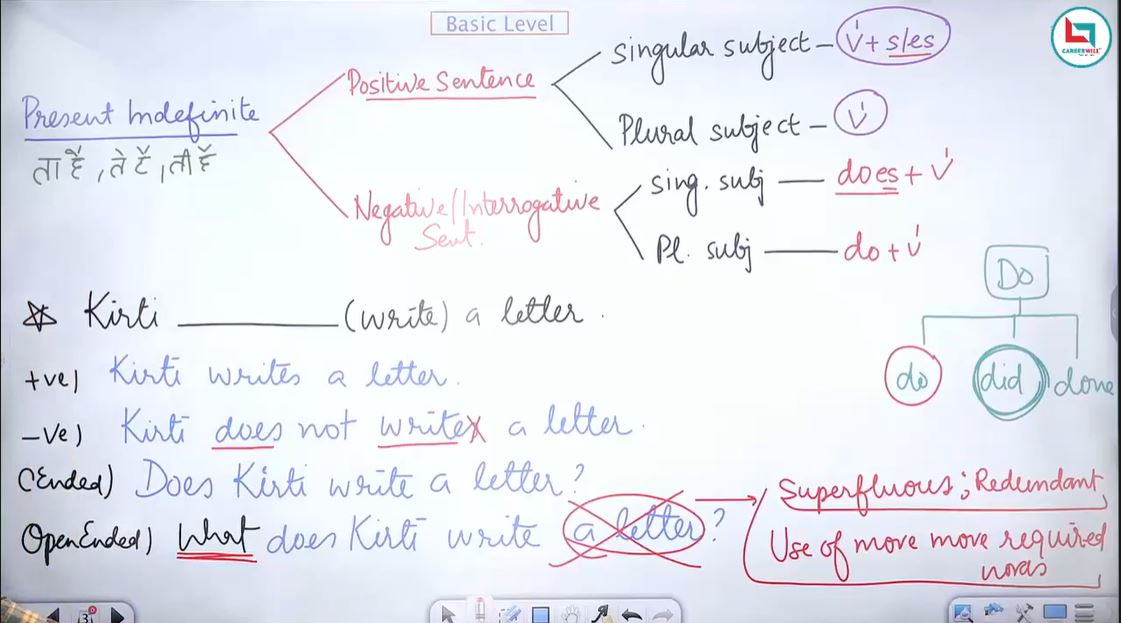 Basic Level
CAREERWILL
Present Indefinite
ता है, ते हैं, ती है
Positive Sentence
singular subject – V¹ + s/es
Plural subject – V¹
Negative/Interrogative
Sent.
sing. subj — does + V¹
Pl. subj — do + V¹
Do
do did done
Kirti ________ (write) a letter.
+ve) Kirti writes a letter.
-Ve) Kirti does not write a letter.
(Ended) Does Kirti write a letter?
OpenEnded) What does Kirti write a letter?
Superfluous; Redundant
Use of move move required
words
3